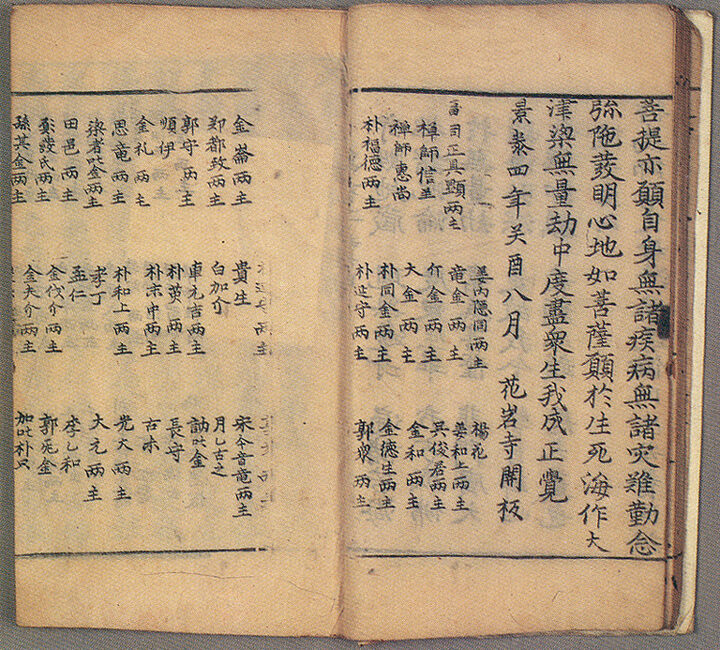 菩提亦願自身無諸疾病無諸灾難勤念
弥陁發明心地如菩薩願於生死海作大
津梁無量劫中度盡衆生我成正覺
景泰四年癸酉八月 花岩寺開板
司正具顯两主 姜內隱同两主 楊花
禅師信 竜金两主 姜和上两主
禅師惠尚 金两主 吴俊君两主
大金两主 金和两主
朴福德两主 朴同金两主 金德生两主
朴延守两主 郭衆两主
金崙两主 貴生 宋今音竜两主
郑都致两主 白加介 月乙古之
郭守两主 車元吉两主 訥叱金
順伊 朴两主 長守
金礼两主 朴末中两主 古未
思竜两主 朴和上两主 大两主
梁者叱金两主 李丁 大元两主
田邑两主 孟仁 李乙和
發氏两主 金伐介两主 郭金
孫其金两主 金夫介两主 加叱朴只